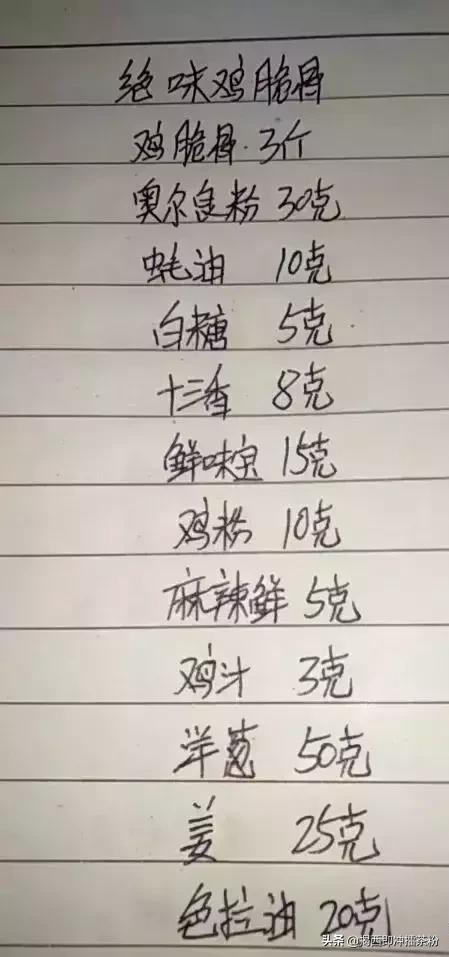 绝味鸡脆骨
鸡脆骨.3个
奥尔良粉 30克
蚝油 10克
白糖 5克
十三香 8克
鲜味宝 15克
鸡粉 10克
麻辣鲜 5克
鸡汁 3克
洋葱 50克
姜 25克
色拉油 20克
头条 @揭西即冲擂茶粉